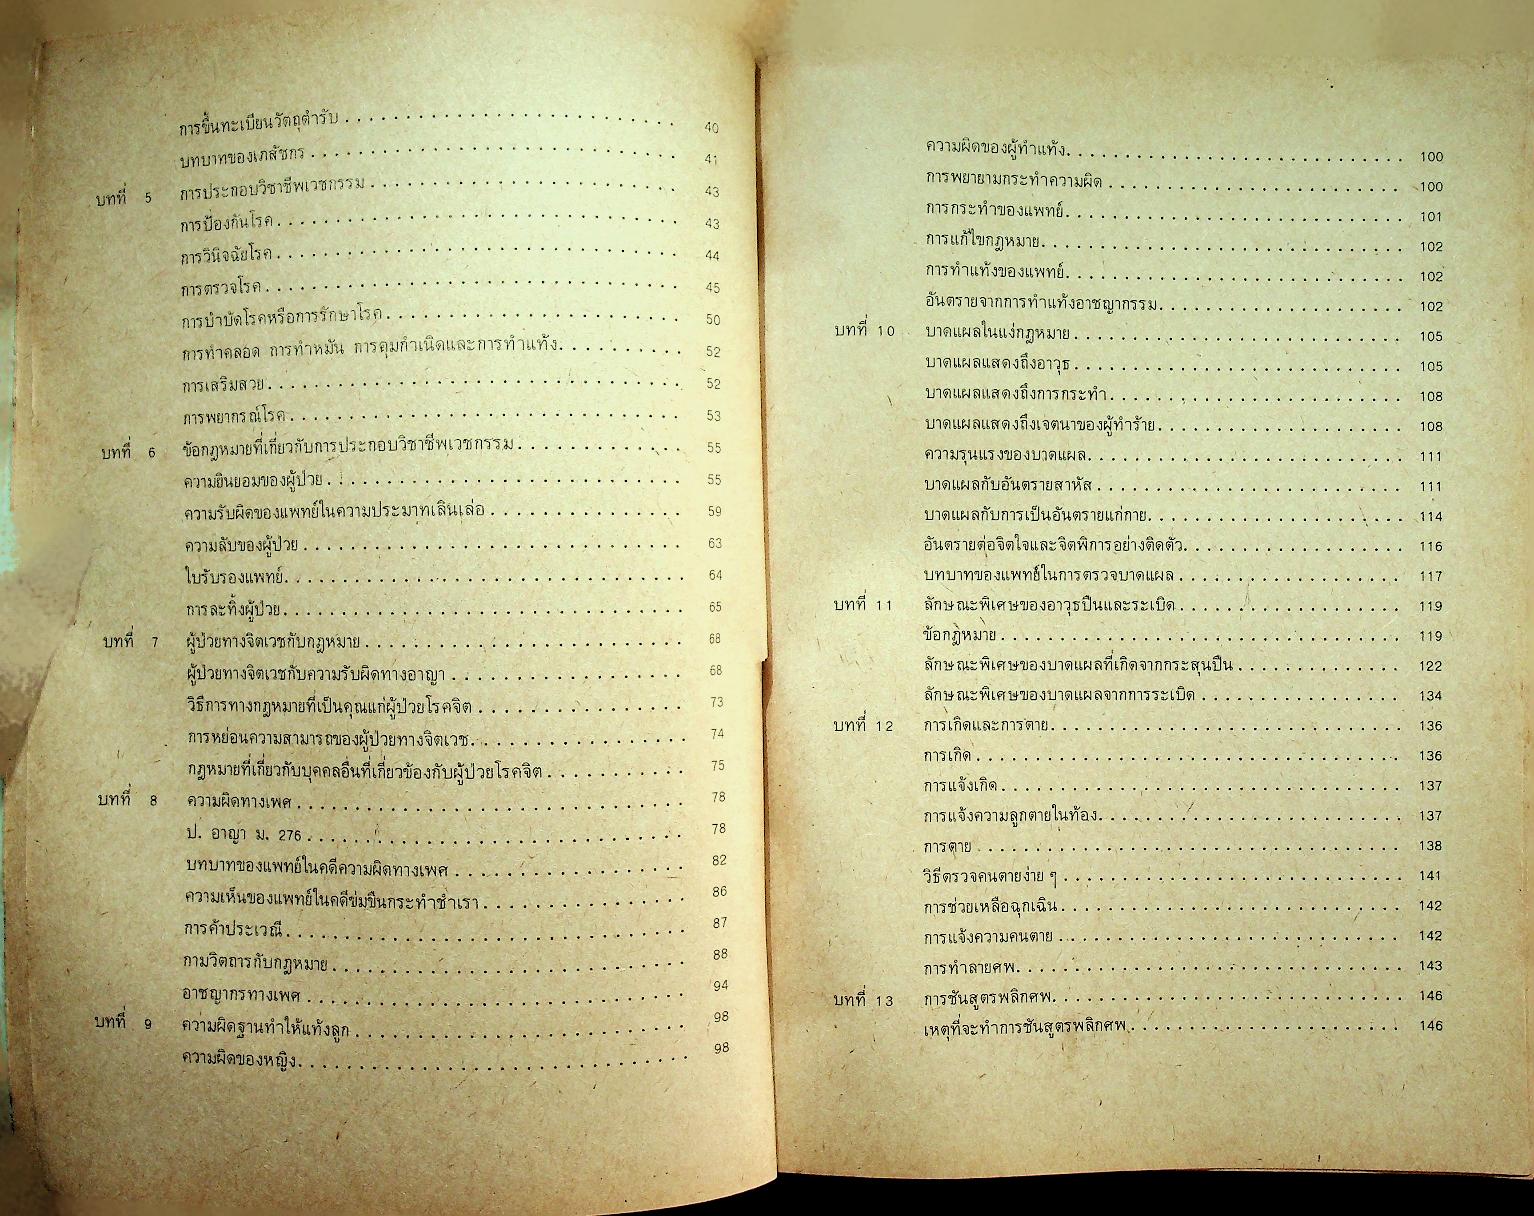 การขึ้นทะเบียนวัตถุตำรับ 40
บทบาทของเภสัชกร 41
บทที่ 5 การประกอบวิชาชีพเวชกรรม 43
การป้องกันโรค 43
การวินิจฉัยโรค 44
การตรวจโรค 45
การบำบัดโรคหรือการรักษาโรค 50
การทำคลอด การทำหมัน การคุมกำเนิดและการทำแท้ง 52
การเสริมสวย 52
การพยากรณ์โรค 53
บทที่ 6 ข้อกฎหมายที่เกี่ยวกับการประกอบวิชาชีพเวชกรรม 55
ความยินยอมของผู้ป่วย 55
ความรับผิดของแพทย์ในความประมาทเลินเล่อ 59
ความลับของผู้ป่วย 63
ใบรับรองแพทย์ 64
การละทิ้งผู้ป่วย 65
บทที่ 7 ผู้ป่วยทางจิตเวชกับกฎหมาย 68
ผู้ป่วยทางจิตเวชกับความรับผิดทางอาญา 68
วิธีการทางกฎหมายที่เป็นคุณแก่ผู้ป่วยโรคจิต 73
การหย่อนความสามารถของผู้ป่วยทางจิตเวช 74
กฎหมายที่เกี่ยวกับบุคคลอื่นที่เกี่ยวข้องกับผู้ป่วยโรคจิต 75
บทที่ 8 ความผิดทางเพศ 78
ป. อาญา ม. 276 78
บทบาทของแพทย์ในคดีความผิดทางเพศ 82
ความเห็นของแพทย์ในคดีข่มขืนกระทำชำเรา 86
การค้าประเวณี 87
กามวิตถารกับกฎหมาย 88
อาชญากรทางเพศ 94
บทที่ 9 ความผิดฐานทำให้แท้งลูก 98
ความผิดของหญิง 98
ความผิดของผู้ทำแท้ง 100
การพยายามกระทำความผิด 100
การกระทำของแพทย์ 101
การแก้ไขกฎหมาย 102
การทำแท้งของแพทย์ 102
อันตรายจากการทำแท้งอาชญากรรม 102
บทที่ 10 บาดแผลในแง่กฎหมาย 105
บาดแผลแสดงถึงอาวุธ 105
บาดแผลแสดงถึงการกระทำ 108
บาดแผลแสดงถึงเจตนาของผู้ทำร้าย 108
ความรุนแรงของบาดแผล 111
บาดแผลกับอันตรายสาหัส 111
บาดแผลกับการเป็นอันตรายแก่กาย 114
อันตรายต่อจิตใจและจิตพิการอย่างติดตัว 116
บทบาทของแพทย์ในการตรวจบาดแผล 117
บทที่ 11 ลักษณะพิเศษของอาวุธปืนและระเบิด 119
ข้อกฎหมาย 119
ลักษณะพิเศษของบาดแผลที่เกิดจากกระสุนปืน 122
ลักษณะพิเศษของบาดแผลจากการระเบิด 134
บทที่ 12 การเกิดและการตาย 136
การเกิด 136
การแจ้งเกิด 137
การแจ้งความลูกตายในท้อง 137
การตาย 138
วิธีตรวจคนตายง่าย ๆ 141
การช่วยเหลือฉุกเฉิน 142
การแจ้งความคนตาย 142
การทำลายศพ 143
บทที่ 13 การชันสูตรพลิกศพ 146
เหตุที่จะทำการชันสูตรพลิกศพ 146